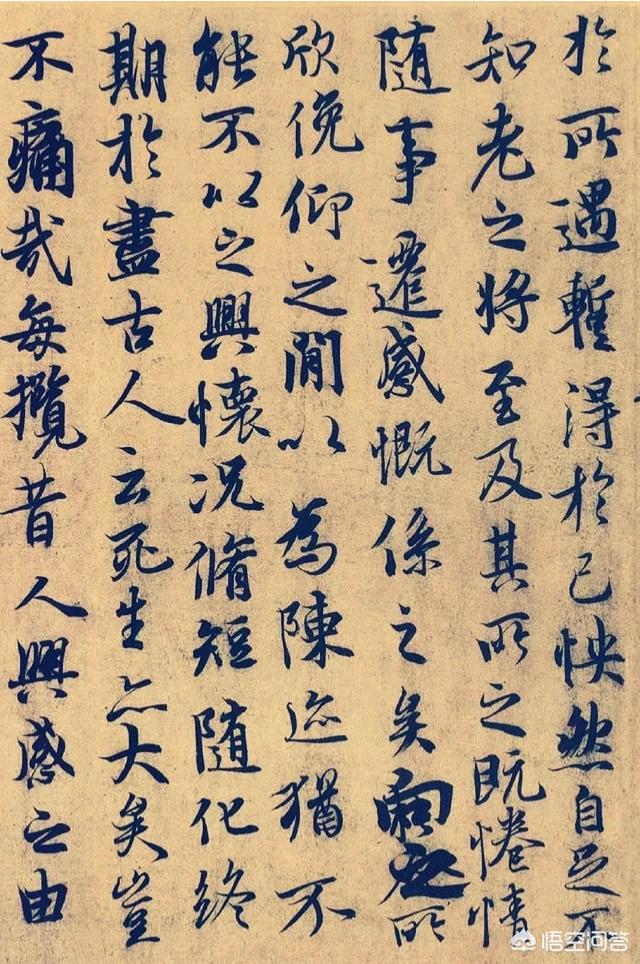 於所遇暫得於己怏然自足不
知老之將至及其所之既惓情
隨事遷感慨係之矣向之所
欣俛仰之閒以為陳迹猶不
能不以之興懷況脩短隨化終
期於盡古人云死生亦大矣豈
不痛哉每攬昔人興感之由
悟空问答